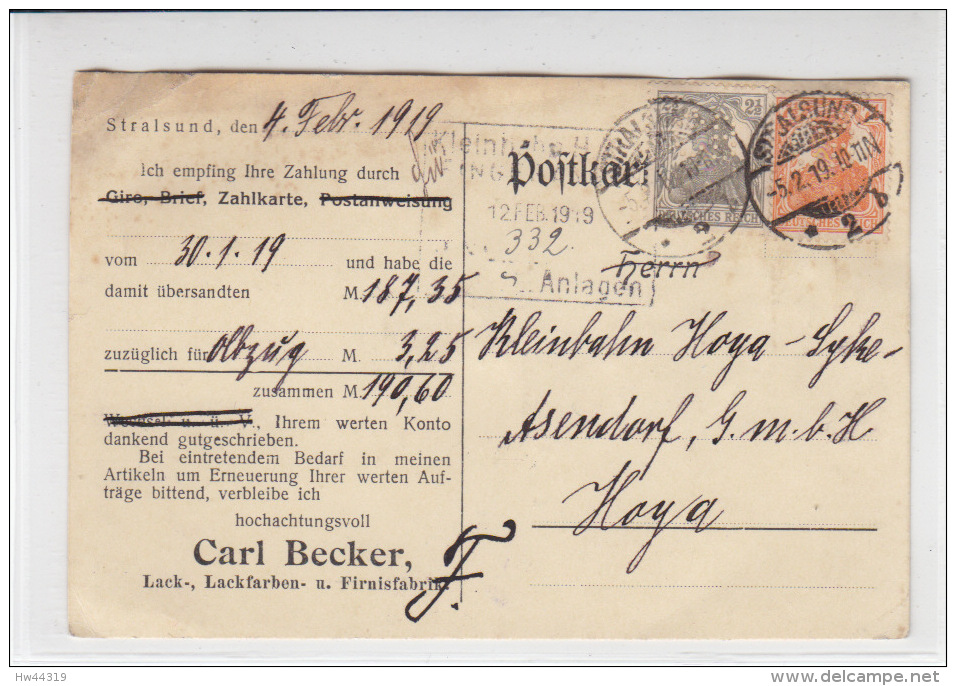 Stralsund, den 4. Febr. 1919
Ich empfing Ihre Zahlung durch
Giro, Brief, Zahlkarte, Postanweisung
vom 30.1.19 und habe die
damit übersandten M. 187,35
zuzüglich für Abzug M. 3,25
zusammen M. 190,60
Wechsel u. ü. V., Ihrem werten Konto
dankend gutgeschrieben.
Bei eintretendem Bedarf in meinen
Artikeln um Erneuerung Ihrer werten Auf-
träge bittend, verbleibe ich
hochachtungsvoll
Carl Becker,
Lack-, Lackfarben- u. Firnisfabrik.
Postkarte
Kleinbahn
12.FEB.1919
332.
Anlagen
2½
DEUTSCHES REICH
STRALSUND
-5.2.19.
* 2
DEUTSCHES REICH
Herrn
Kleinbahn Hoya-Syke-
Asendorf, G.m.b.H.
Hoya
Hw44319
delcampe.net